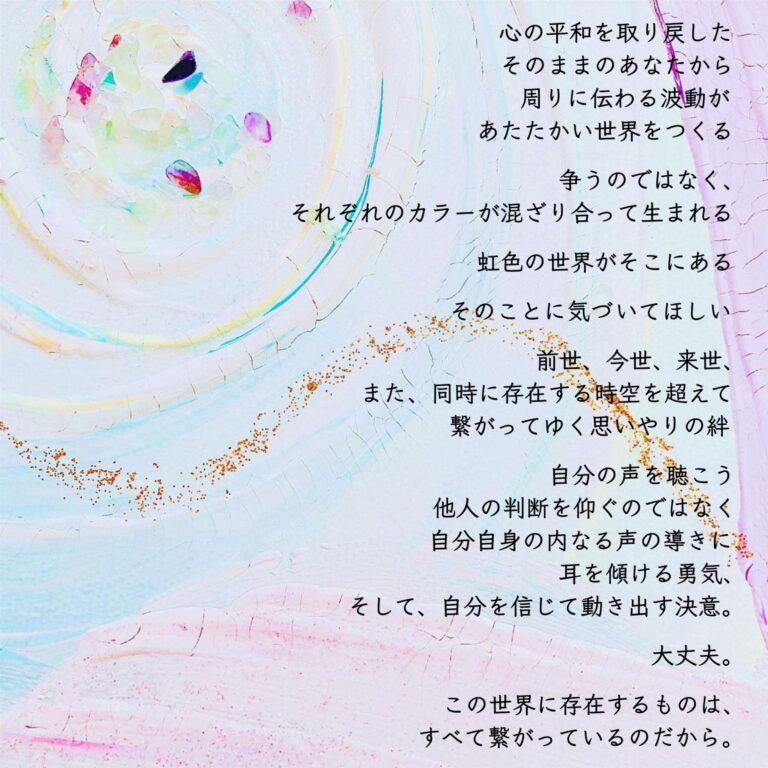 心の平和を取り戻した
そのままのあなたから
周りに伝わる波動が
あたたかい世界をつくる
争うのではなく、
それぞれのカラーが混ざり合って生まれる
虹色の世界がそこにある
そのことに気づいてほしい
前世、今世、来世、
また、同時に存在する時空を超えて
繋がってゆく思いやりの絆
自分の声を聴こう
他人の判断を仰ぐのではなく
自分自身の内なる声の導きに
耳を傾ける勇気、
そして、自分を信じて動き出す決意。
大丈夫。
この世界に存在するものは、
すべて繋がっているのだから。